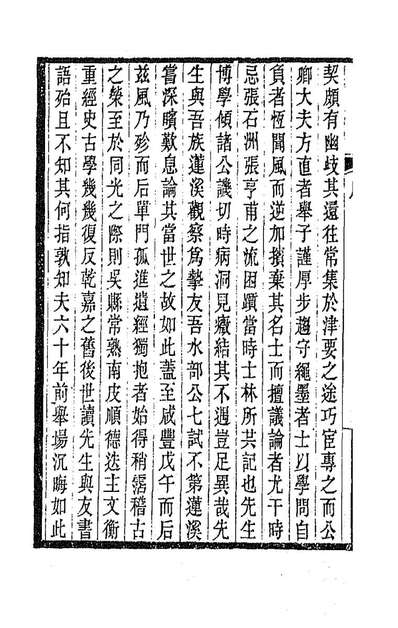 契頗有幽歧其還往常集於津要之途巧宦專之而公
卿大夫方直者舉子謹厚步趨守繩墨者士以學問自
負者恆聞風而逆加擯棄其名士而擅議論者尤干時
忌張石洲張亨甫之流困躓當時士林所共記也先生
博學傾諸公譏切時病洞見癥結其不遇豈足異哉先
生與吾族蓮溪觀察爲摯友吾水部公七試不第蓮溪
嘗深矉歎息論其當世之故如此蓋至咸豐戊午而后
茲風乃殄而后單門孤進遺經獨抱者始得稍霑稽古
之榮至於同光之際則吳縣常熟南皮順德迭主文衡
重經史古學幾幾復反乾嘉之舊後世讀先生與友書
語殆且不知其何指孰知夫六十年前舉場沉晦如此